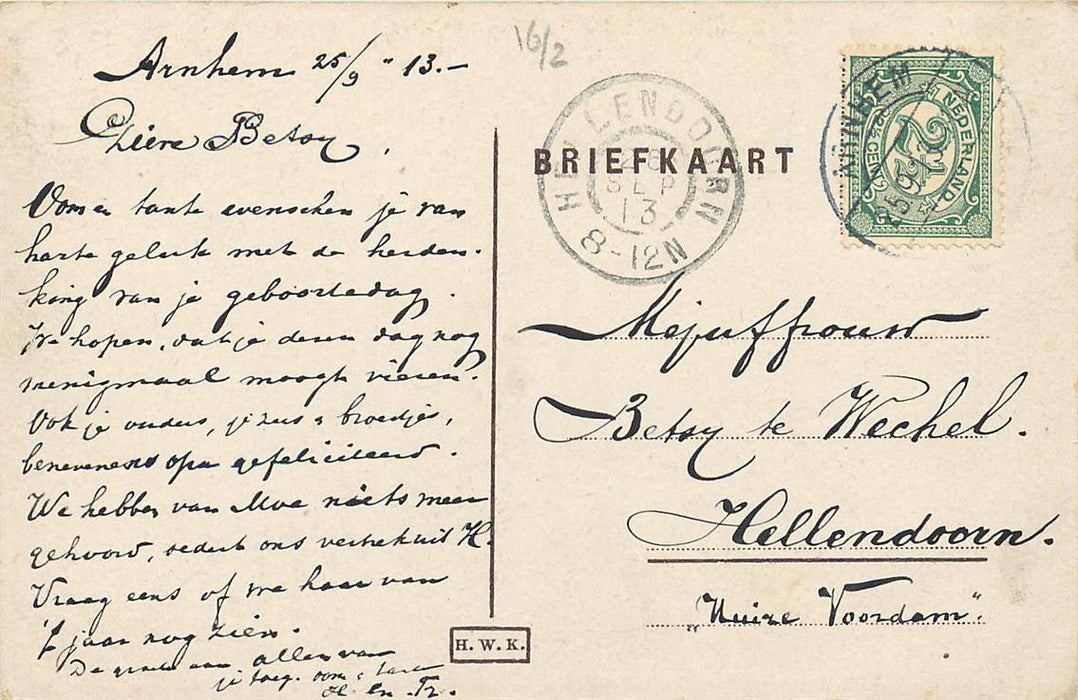 16/2
Arnhem 25/9 " 13.-
Lieve Betsy,
Oom en tante wenschen je van
harte geluk met de herden-
king van je geboortedag.
We hopen, dat je dezen dag nog
menigmaal moogt vieren.
Ook je ouders, je zus & broertjes,
benevens opa gefeliciteerd.
We hebben van Moe niets meer
gehoord, sedert ons vertrek uit H.
Vraag eens of we haar van
't jaar nog zien.
De groeten aan allen van
je toeg. oom & tante
H. en Tr.
H. W. K.
BRIEFKAART
HELLENDOORN
26
SEP
13
8-12N
ARNHEM
25.9.13
NEDERLAND
2½
2½ CENT
Mejuffrouw
Betsy te Wechel.
Hellendoorn.
"Huize Voordam".